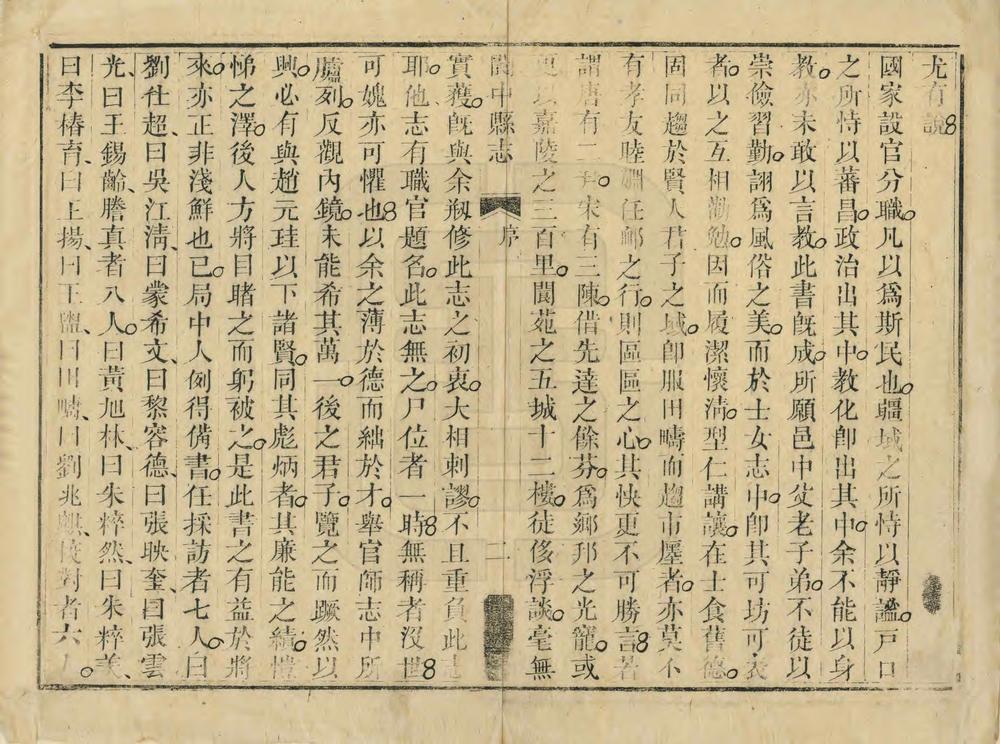 尤有說
國家設官分職凡以爲斯民也疆域之所恃以靜謐戶口
之所恃以蕃昌政治出其中教化卽出其中余不能以身
教亦未敢以言教此書旣成所願邑中父老子弟不徒以
崇儉習勤詡爲風俗之美而於士女志中卽其可坊可表
者以之互相勸勉因而履潔懷淸型仁講讓在士食舊德
固同趨於賢人君子之域卽服田疇而趨市廛者亦莫不
有孝友睦婣任卹之行則區區之心其快更不可勝言若
謂唐有二尹宋有三陳借先達之餘芬爲鄉邦之光寵或
更以嘉陵之三百里閬苑之五城十二樓徒侈浮談毫無
閬中縣志 序 二
實獲旣與余剏修此志之初衷大相刺謬不且重負此志
耶他志有職官題名此志無之尸位者一時無稱者沒世
可媿亦可懼也以余之薄於德而絀於才舉官師志中所
臚列反觀內鏡未能希其萬一後之君子覽之而蹶然以
興必有與趙元珪以下諸賢同其彪炳者其廉能之績愷
悌之澤後人方將目睹之而躬被之是此書之有益於將
來亦正非淺鮮也已局中人例得備書任採訪者七人曰
劉仕超曰吳江淸曰蒙希文曰黎容德曰張映奎曰張雲
光曰王錫齡謄真者八人曰黃旭林曰朱粹然曰朱粹美
曰李椿育曰王揚曰王盥曰田疇曰劉兆麒校對者六人